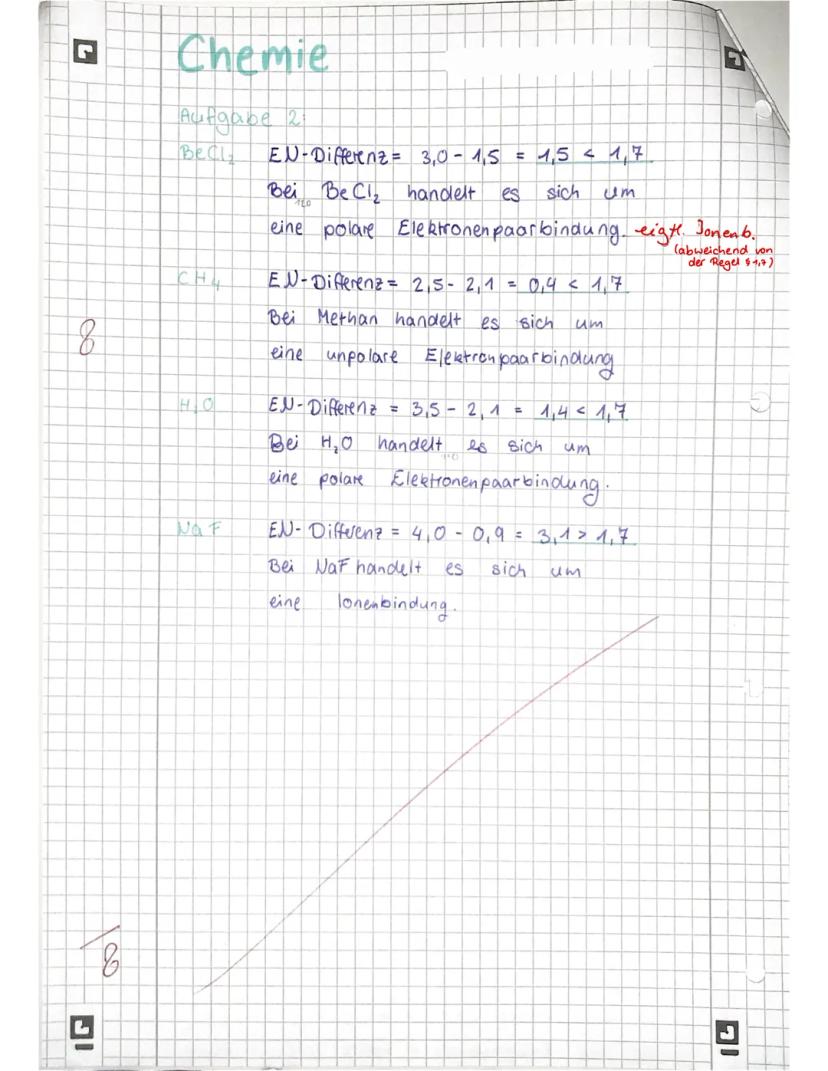 Chemie
Aufgabe 2:
BeCl₂ EN-Differenz = 3,0 - 1,5 = 1,5 < 1,7
Bei BeCl₂ handelt es sich um
eine polare Elektronenpaarbindung. eigtl. Ionenb.
(abweichend von
der Regel
CH₄ EN-Differenz = 2,5 - 2,1 = 0,4 < 1,7
Bei Methan handelt es sich um
8
eine unpolare Elektronpaarbindung
H₂O EN-Differenz = 3,5 - 2,1 = 1,4 < 1,7
Bei H₂O handelt es sich um
eine polare Elektronenpaarbindung.
NaF EN-Differenz = 4,0 - 0,9 = 3,1 > 1,7
Bei NaF handelt es sich um
eine Ionenbindung.
/8